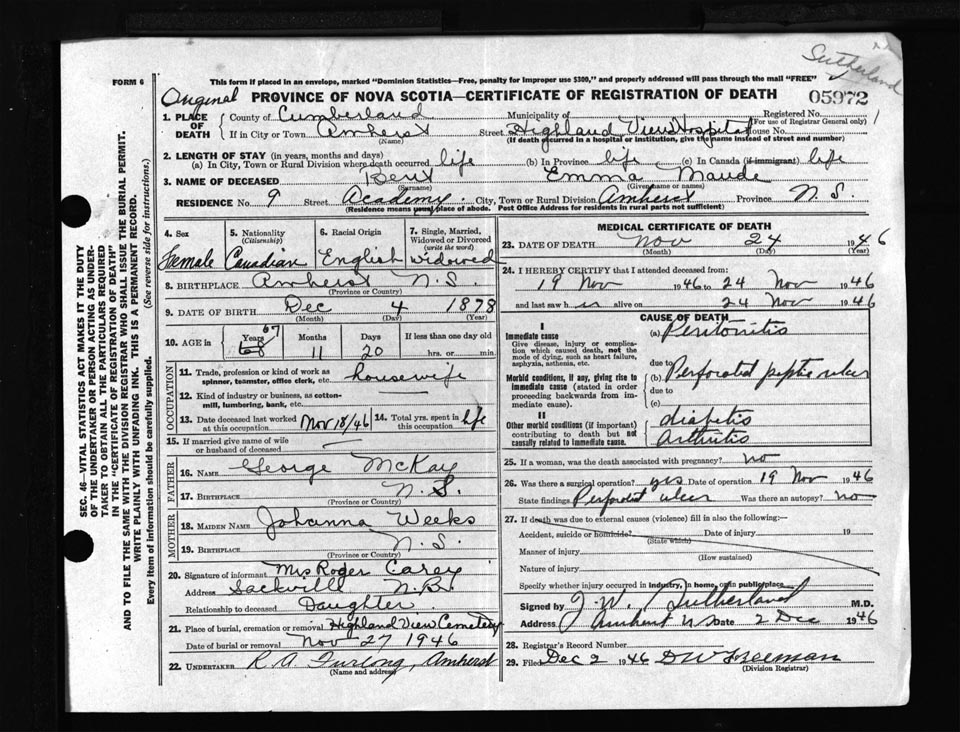 Sutherland
FORM 6
This form if placed in an envelope, marked "Dominion Statistics—Free, penalty for improper use $300," and properly addressed will pass through the mail "FREE"
Original PROVINCE OF NOVA SCOTIA—CERTIFICATE OF REGISTRATION OF DEATH 05972
1. PLACE OF DEATH County of Cumberland Municipality of Registered No. 1
(For use of Registrar General only)
If in City or Town Amherst Street Highland View Hospital House No.
(Name) (If death occurred in a hospital or institution, give the name instead of street and number)
2. LENGTH OF STAY (in years, months and days)
(a) In City, Town or Rural Division where death occurred life (b) In Province life (c) In Canada (if immigrant) life
3. NAME OF DECEASED Bent Emma Maude
(Surname) (Given name or names)
RESIDENCE No. 9 Street Academy City, Town or Rural Division Amherst Province N. S
(Residence means usual place of abode. Post Office Address for residents in rural parts not sufficient)
4. Sex Female
5. Nationality (Citizenship) Canadian
6. Racial Origin English
7. Single, Married, Widowed or Divorced (write the word) Widowed
8. BIRTHPLACE Amherst N. S.
(Province or Country)
9. DATE OF BIRTH Dec 4 1878
(Month) (Day) (Year)
10. AGE in Years 68 67 Months 11 Days 20 If less than one day old hrs. or min.
OCCUPATION
11. Trade, profession or kind of work as spinner, teamster, office clerk, etc. housewife
12. Kind of industry or business, as cotton-mill, lumbering, bank, etc.
13. Date deceased last worked at this occupation Nov 18/46 14. Total yrs. spent in this occupation life
15. If married give name of wife or husband of deceased
FATHER
16. NAME George McKay
17. BIRTHPLACE N. S.
(Province or Country)
MOTHER
18. MAIDEN NAME Johanna Weeks
19. BIRTHPLACE N. S.
(Province or Country)
20. Signature of informant Mrs Roger Carey
Address Sackville N.B.
Relationship to deceased Daughter
21. Place of burial, cremation or removal Highland View Cemetery
Date of burial or removal Nov 27 1946
22. UNDERTAKER R. A. Furlong, Amherst
(Name and address)
MEDICAL CERTIFICATE OF DEATH
23. DATE OF DEATH Nov 24 1946
(Month) (Day) (Year)
24. I HEREBY CERTIFY that I attended deceased from:
19 Nov 1946 to 24 Nov 1946
and last saw h er alive on 24 Nov 1946
CAUSE OF DEATH
I
Immediate cause (a) Peritonitis
Give disease, injury or complication which caused death, not the mode of dying, such as heart failure, asphyxia, asthenia, etc.
due to
Morbid conditions, if any, giving rise to immediate cause (stated in order proceeding backwards from immediate cause). (b) Perforated peptic ulcer
due to
(c)
II
Other morbid conditions (if important) contributing to death but not causally related to immediate cause. diabetis
Arthritis
25. If a woman, was the death associated with pregnancy? no
26. Was there a surgical operation? yes Date of operation 19 Nov 1946
State findings Perforated ulcer Was there an autopsy? no
27. If death was due to external causes (violence) fill in also the following:—
Accident, suicide or homicide? Date of injury 19
(State which)
Manner of injury
(How sustained)
Nature of injury
Specify whether injury occurred in industry, in home, or in public place
Signed by J. W. Sutherland M.D.
Address Amherst NS Date 2 Dec 1946
28. Registrar's Record Number
29. Filed Dec 2 1946 DW Freeman
(Division Registrar)
SEC. 46—VITAL STATISTICS ACT MAKES IT THE DUTY
OF THE UNDERTAKER OR PERSON ACTING AS UNDER-
TAKER TO OBTAIN ALL THE PARTICULARS REQUIRED
IN THE "CERTIFICATE OF REGISTRATION OF DEATH"
AND TO FILE THE SAME WITH THE DIVISION REGISTRAR WHO SHALL ISSUE THE BURIAL PERMIT.
WRITE PLAINLY WITH UNFADING INK. THIS IS A PERMANENT RECORD.
Every item of information should be carefully supplied. (See reverse side for instructions.)